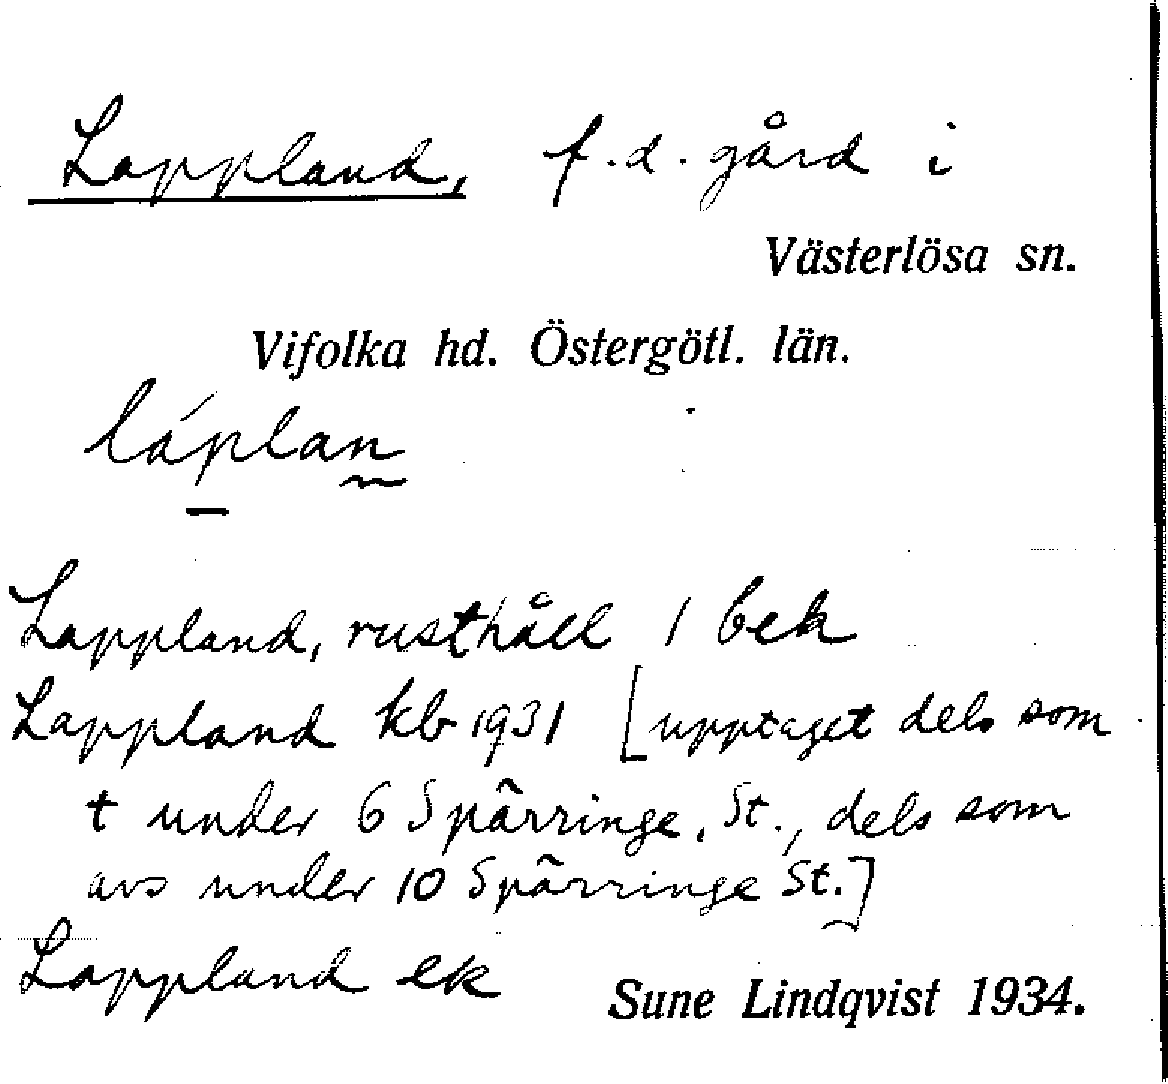 Lappland, f.d. gård i
Västerlösa sn.
Vifolka hd. Östergötl. län.
láplan
Lappland, rusthåll 1 bek
Lappland kb 1931 [upptaget dels som
t under 6 Spärringe, St., dels som
avs under 10 Spärringe St.]
Lappland ek
Sune Lindqvist 1934.